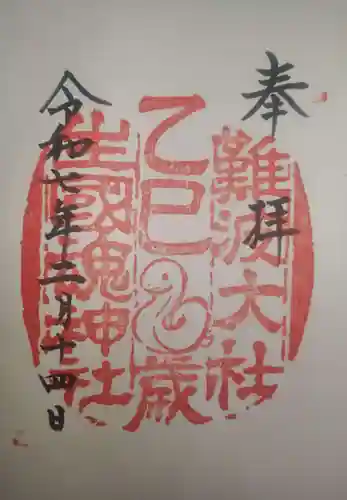 奉拝
難波大社
乙巳歳
生國魂神社
令和七年三月十四日